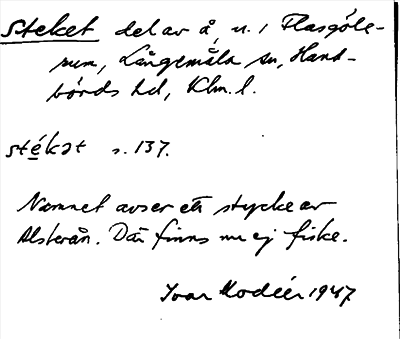 Steket del av å, n. i Flasgöle-
rum, Långemåla sn, Hand-
börds hd, Klm. l.
stékət s. 137.
Namnet avser ett stycke av
Alsterån. Där finns nu ej fiske.
Ivar Modéer 1947